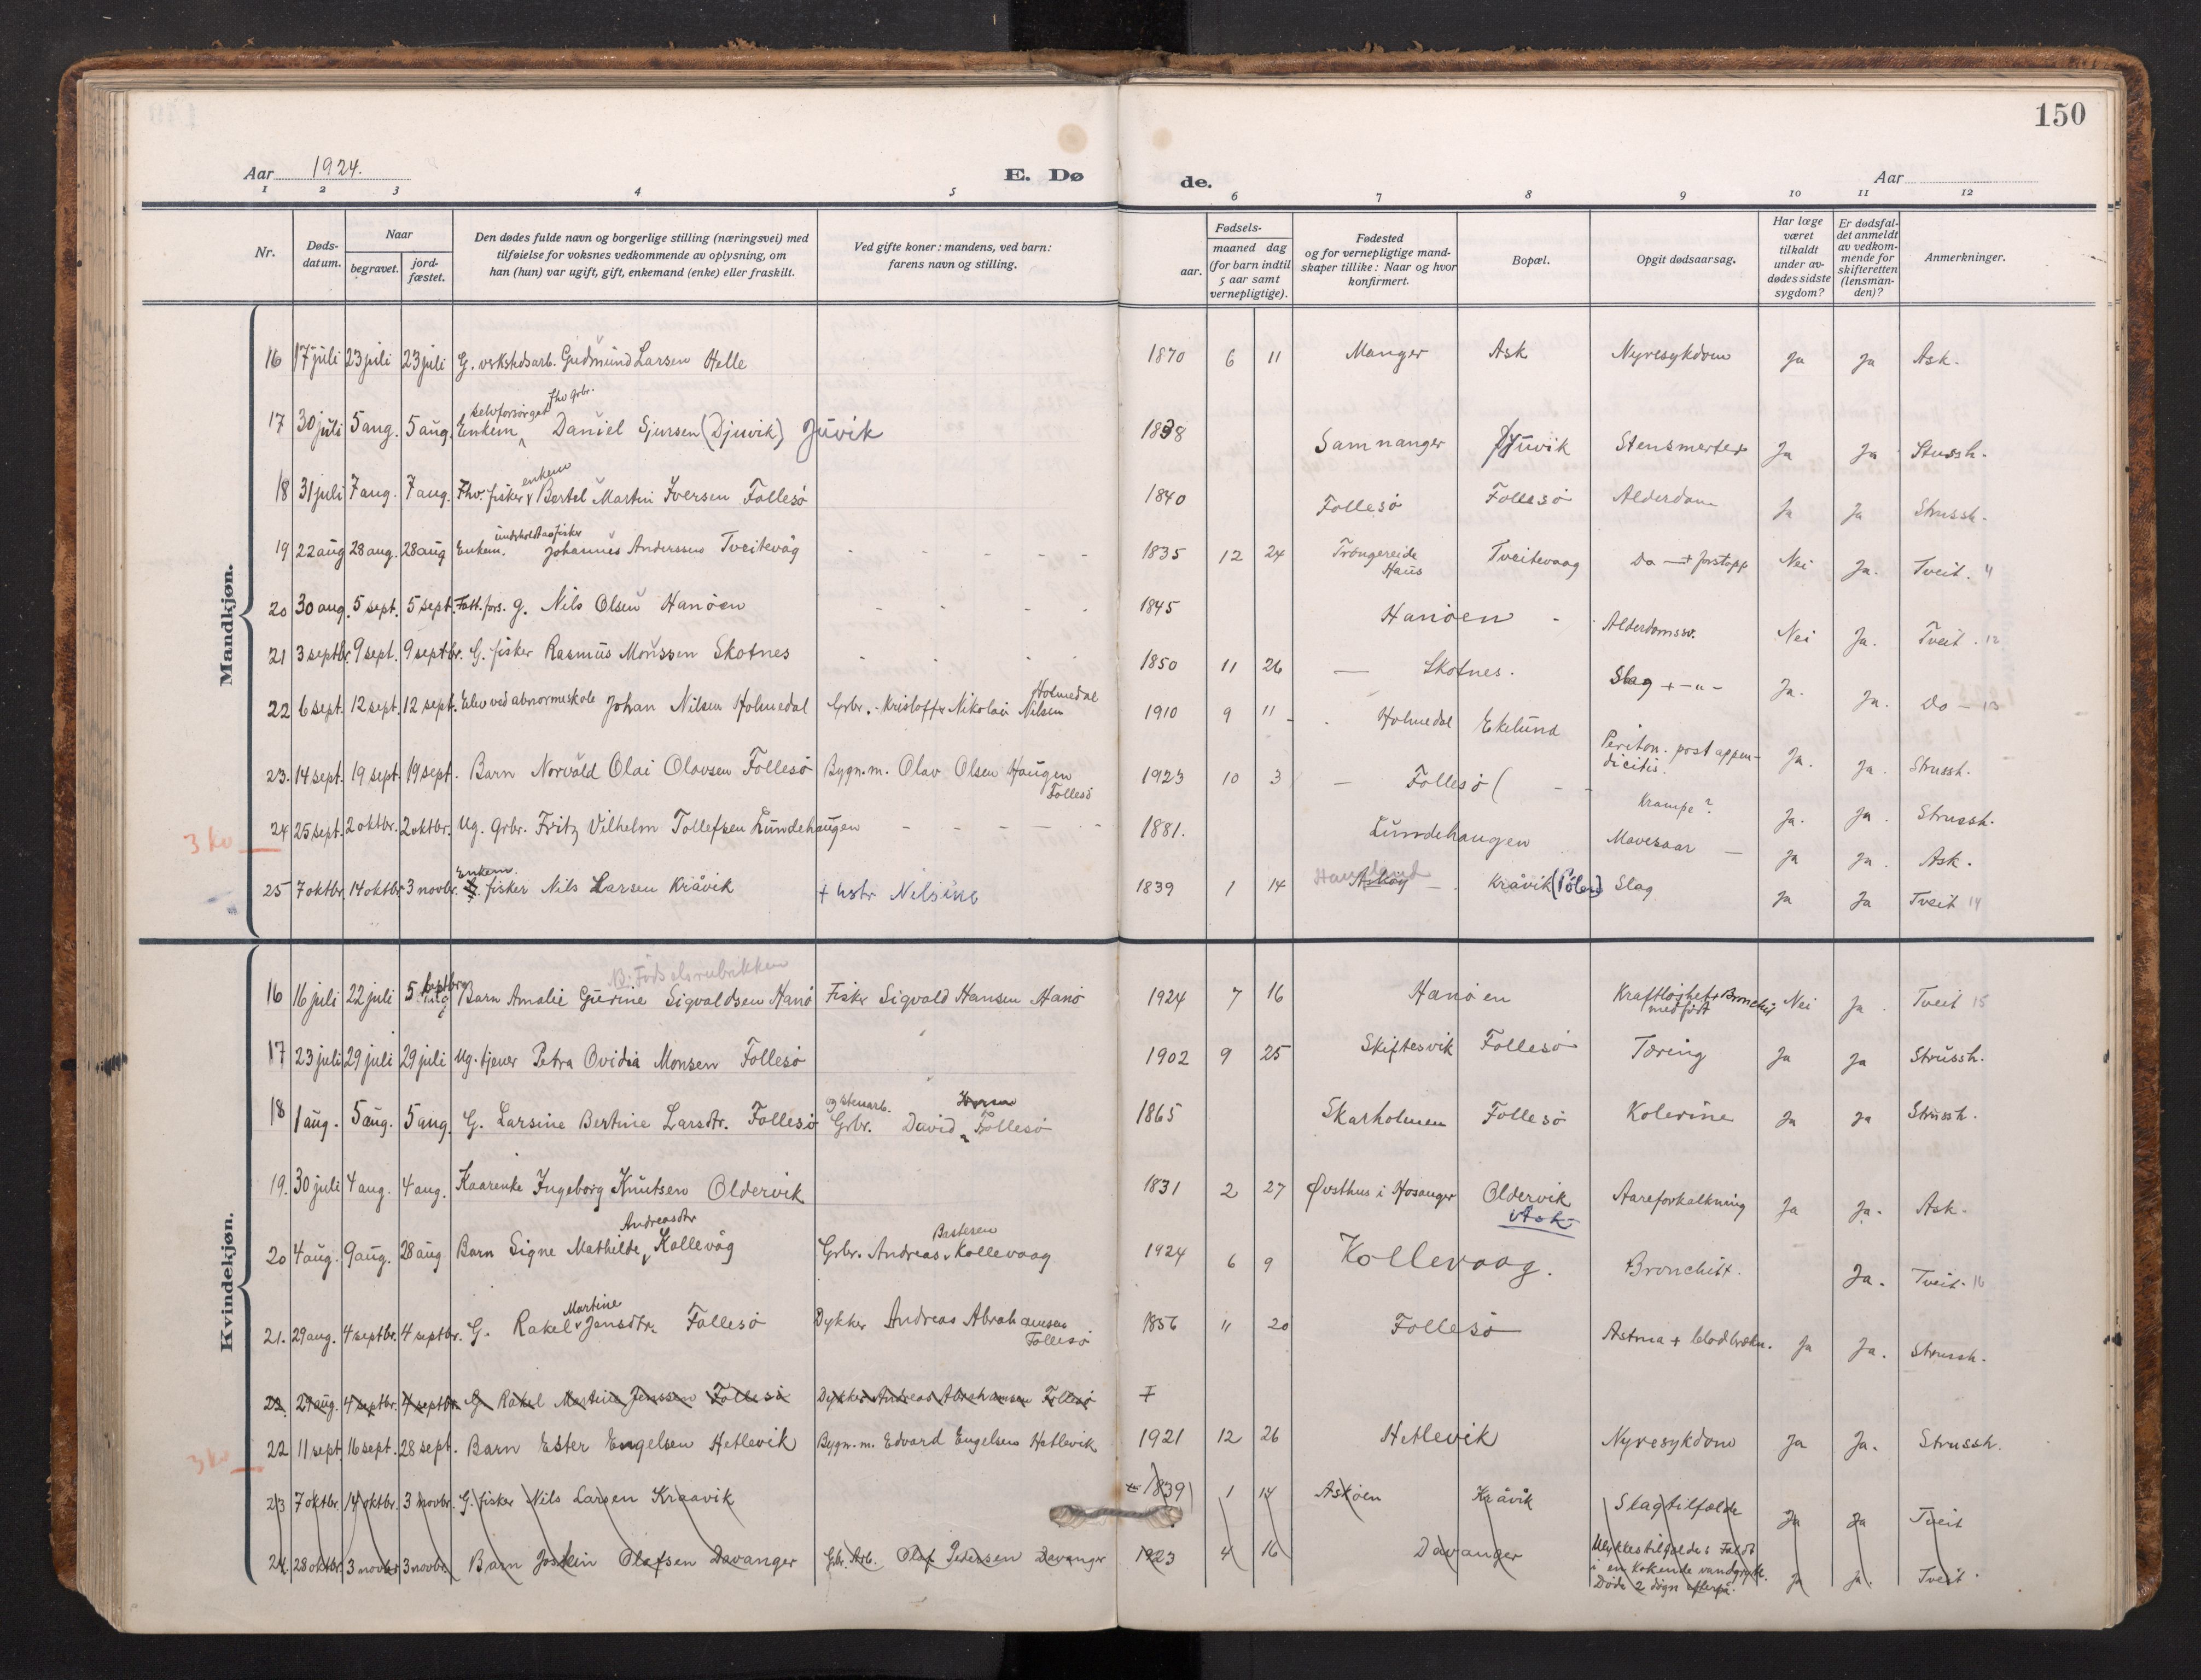 150
Aar 1924.
E. Døde.
Aar
1 2 3 4 5 6 7 8 9 10 11 12
Nr.
Døds-
datum.
Naar
begravet.
jord-
fæstet.
Den dødes fulde navn og borgerlige stilling (næringsvei) med
tilføielse for voksnes vedkommende av oplysning, om
han (hun) var ugift, gift, enkemand (enke) eller fraskilt.
Ved gifte koner: mandens, ved barn:
farens navn og stilling.
Fødsels-
aar.
maaned dag
(for barn indtil
5 aar samt
vernepligtige).
Fødested
og for vernepligtige mand-
skaper tillike: Naar og hvor
konfirmert.
Bopæl.
Opgit dødsaarsag.
Har læge
været
tilkaldt
under av-
dødes sidste
sygdom?
Er dødsfal-
det anmeldt
av vedkom-
mende for
skifteretten
(lensman-
den)?
Anmerkninger.
Mandkjøn.
16 17 juli 23 juli 23 juli G. verkstedsarb. Gudmund Larsen Helle 1870 6 11 Manger Ask Nyresykdom Ja Ja Ask.
selvforsørget fhv grbr.
17 30 juli 5 aug. 5 aug. Enkem. Daniel Sjursen (Djuvik) Juvik 1838 Samnanger Juvik Stensmerter Ja Ja Strussh.
enkem
18 31 juli 7 aug. 7 aug. Fhv. fisker Bertel Martin Iversen Follesö 1840 Follesö Follesö Alderdom Ja Ja Strussh.
underholdt av fisker
19 22 aug 28 aug. 28 aug Enkem. Johannes Anderssen Tveitevåg 1835 12 24 Trongereide Haus Tveitevaag Do + forstopp Nei Ja. Tveit.
20 30 aug. 5 sept. 5 sept. Fatt. fors. g. Nils Olsen Hanöen 1845 Hanöen Alderdomssv. Nei Ja. Tveit. 12
21 3 septbr. 9 sept. 9 septbr. G. fisker Rasmus Monssen Skotnes 1850 11 26 Skotnes. Slag + - " - Ja. Ja. Do - 13
Holmedal
22 6 sept. 12 sept. 12 sept. Elev ved abnormeskole Johan Nilsen Holmedal Grbr. Kristoffer Nikolai Nilsen 1910 9 11 Holmedal Ekelund Periton. post appen-
dicitis. Ja. Ja. Strussh.
23. 14 sept. 19 sept. 19 sept. Barn Norvald Olai Olavsen Follesö Bygn.m. Olav Olsen Haugen
Follesö 1923 10 3 Follesö Krampe? Ja. Ja. Strussh.
3 kr
24 25 sept. 2 oktbr. 2 oktbr. Ug. Grbr. Fritz Vilhelm Tollefsen Lundehaugen 1881. Lundehaugen Mavesaar Ja Ja. Ask.
Enkem.
25 7 oktbr. 14 oktbr 3 novbr. G. fisker Nils Larsen Kråvik + hstr Nilsine 1839 1 14 Askøy Kråvik Slag Ja Ja Tveit 14
Kvindekjøn.
B. Fødselsrubrikken
16 16 juli 22 juli 5 septbr Barn Amalie Gurine Sigvaldsen Hanö Fisker Sigvald Hansen Hanö 1924 7 16 Hanöen Kraftløshet + Bronchit
medfødt Nei Ja. Tveit 15
17 23 juli 29 juli 29 juli Ug. tjener Petra Ovidia Monsen Follesö 1902 9 25 Skiftesvik Follesö Tæring Ja Ja Strussh.
og stenarb.
18 1 aug. 5 aug. 5 aug. G. Larsine Bertine Larsdtr. Follesö Grbr. David Follesö 1865 Skarholmen Follesö Kolerine Ja Ja Strussh.
19. 30 juli 4 aug. 4 aug. Kaarenke Ingeborg Knutsen Oldervik 1831 2 27 Øvsthus i Hosanger Oldervik
Ask Aareforkalkning Ja Ja. Ask.
Andreasdtr Bertesen
20 4 aug. 9 aug. 28 aug. Barn Signe Mathilde Kollevåg Grbr. Andreas Kollevaag 1924 6 9 Kollevaag. Bronchitt. Ja. Tveit. 16
Martine
21. 29 aug. 4 septbr. 4 septbr. G. Rakel Jensdtr. Follesö Dykker Andreas Abrahamsen
Follesö 1856 11 20 Follesö Astma + blodbrækn. Ja Ja. Strussh.
22. 29 aug. 4 septbr. 4 septbr. G Rakel Martine Jenssen Follesö Dykker Andreas Abrahamsen Follesö
22 11 sept. 16 sept. 28 sept. Barn Ester Engelsen Hetlevik Bygn.m. Edvard Engelsen Hetlevik 1921 12 26 Hetlevik Nyresykdom Ja Ja. Strussh.
3 kr
23 7 oktbr. 14 oktbr. 3 novbr. G. fisker Nils Larsen Kraavik 1839 1 14 Askøen Kråvik Slagtilfælde Ja Ja Tveit
24. 28 oktbr. 3 novbr 3 novbr. Barn Jostein Olafsen Davanger Grbr. Arb. Olaf Pedersen Davanger 1923 4 16 Davanger Ulykkestilfælde: Faldt
i en kokende vandgryte.
Døde 2 døgn efterpå. Ja Ja. Tveit